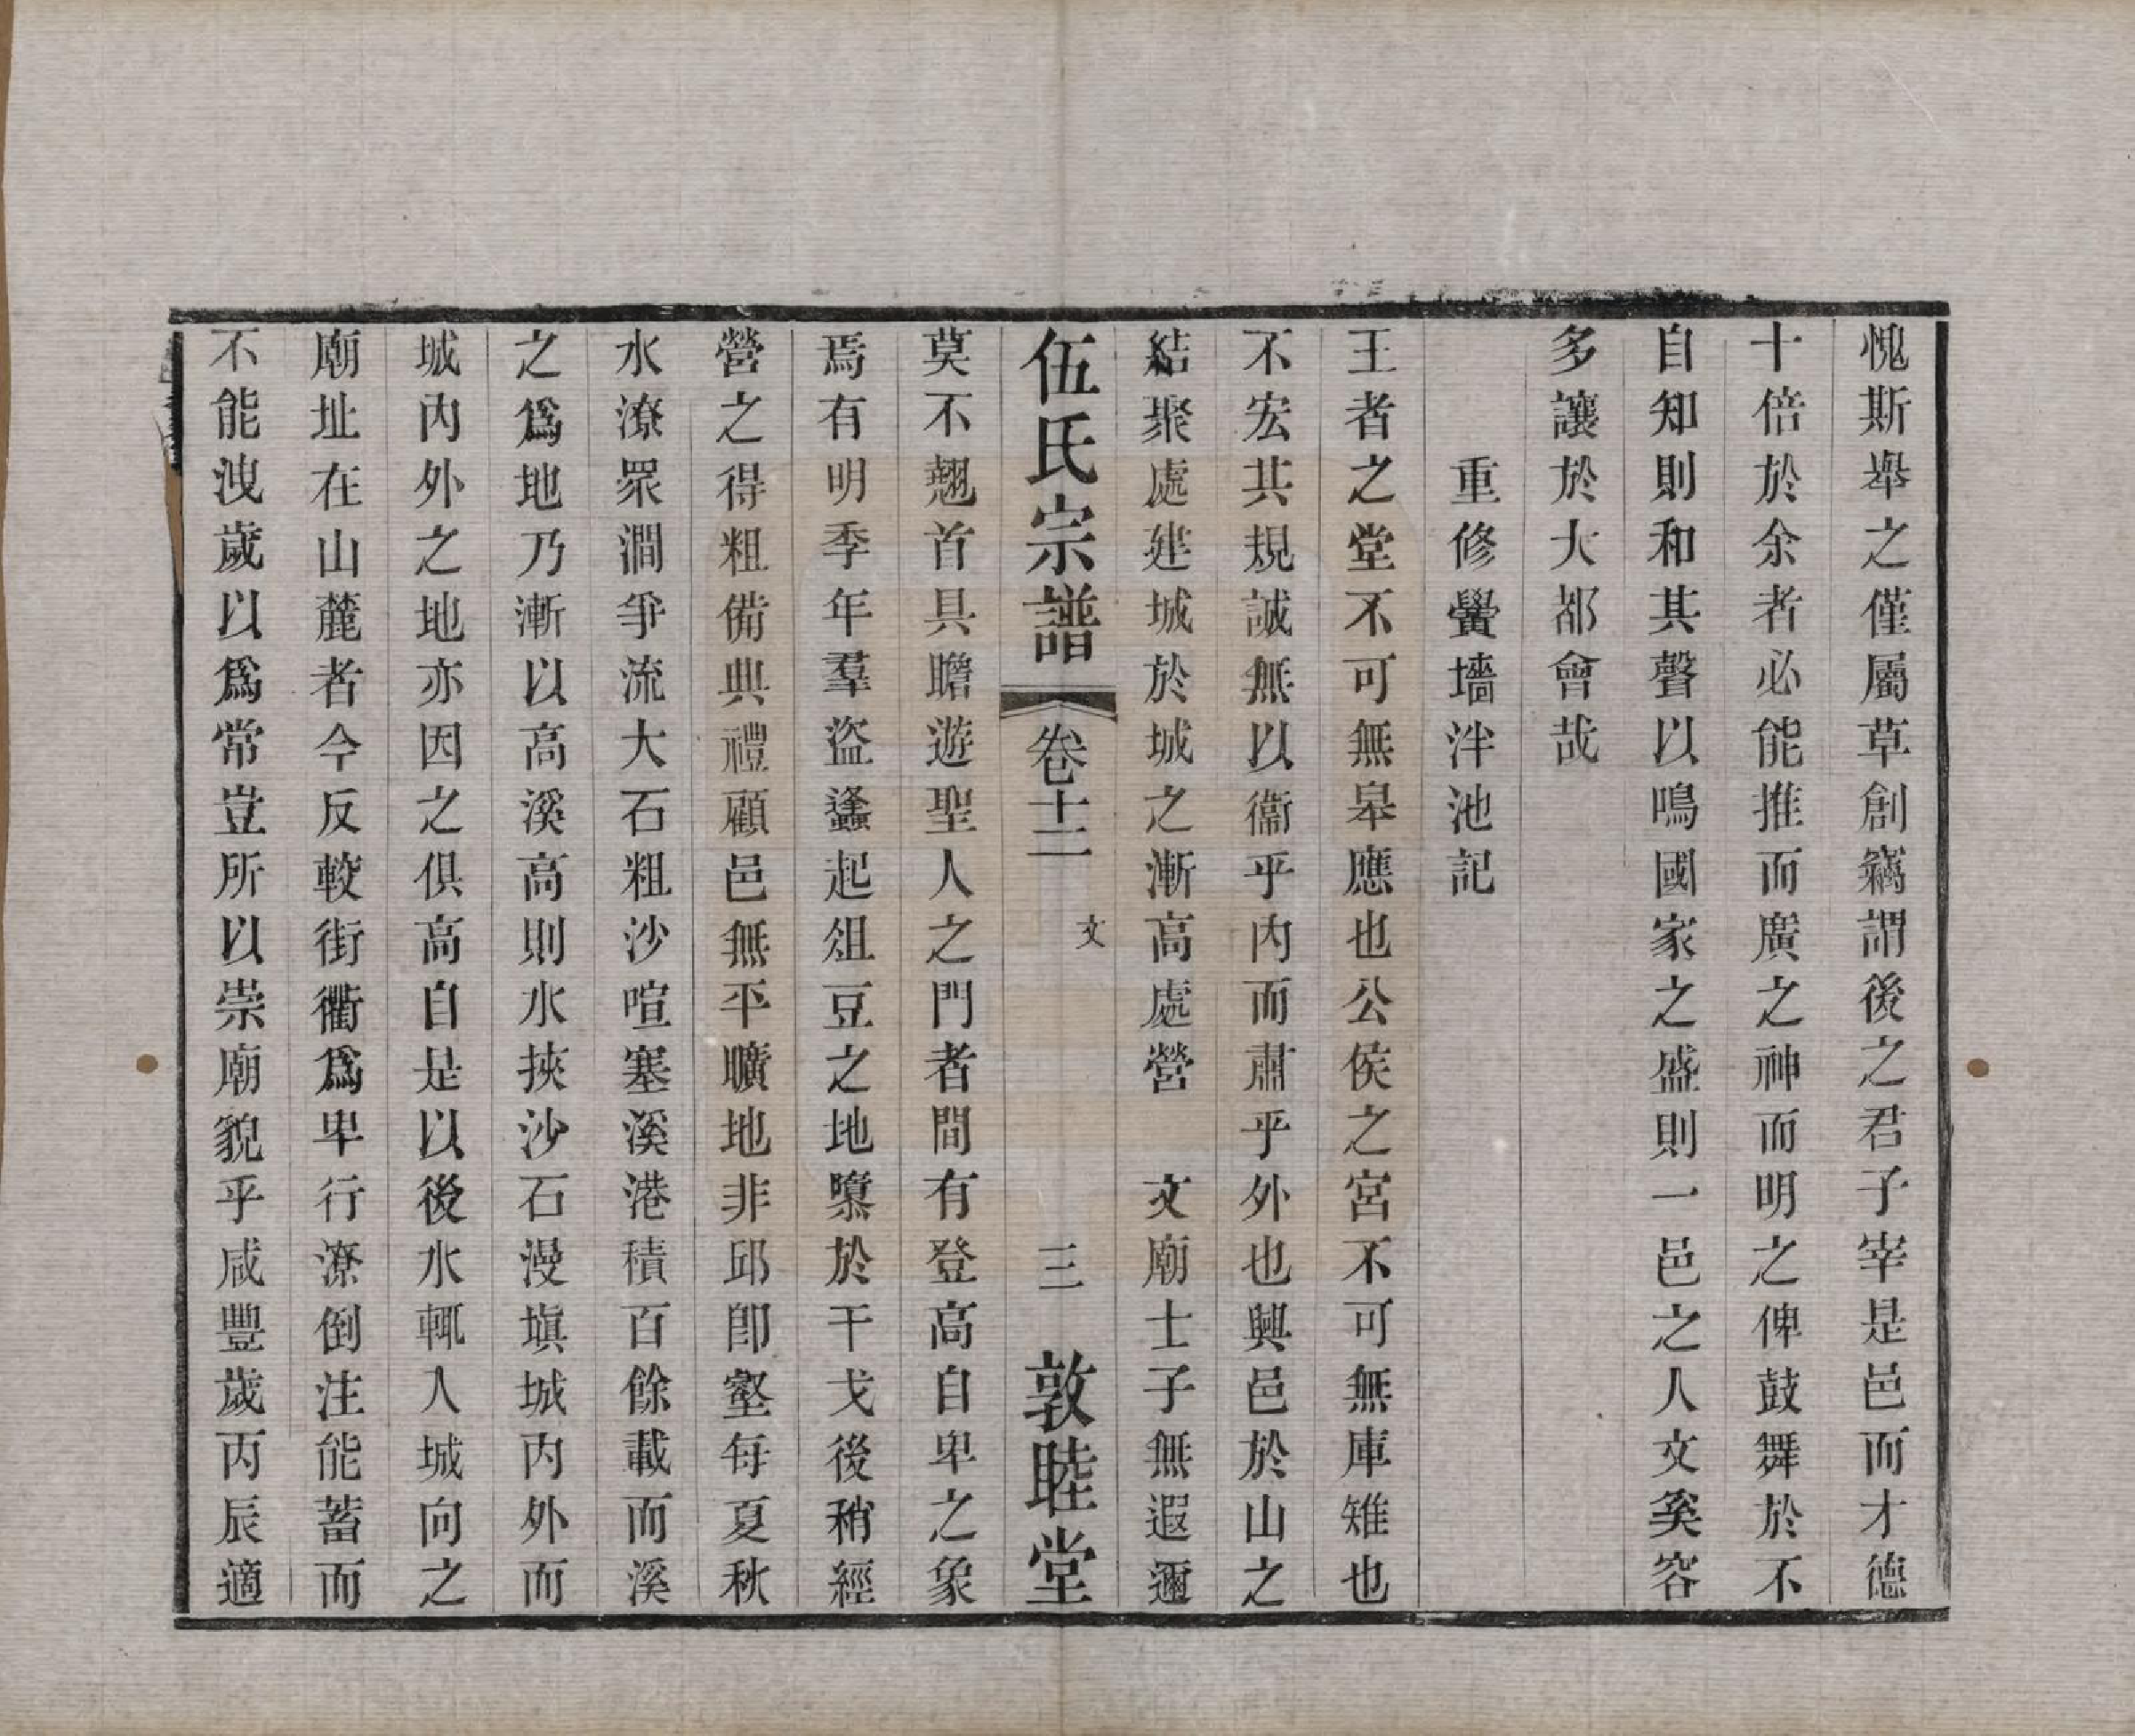 愧斯舉之僅屬草創竊謂後之君子宰是邑而才德
十倍於余者必能推而廣之神而明之俾鼓舞於不
自知則和其聲以鳴國家之盛則一邑之人文奚容
多讓於大都會哉
重修黌墻泮池記
王者之堂不可無皋應也公侯之宮不可無庫雉也
不宏其規誠無以衞乎內而肅乎外也興邑於山之
結聚處建城於城之漸高處營 文廟士子無遐邇
伍氏宗譜 卷十二 文 三 敦睦堂
莫不翹首具瞻遊聖人之門者間有登高自卑之象
焉有明季年羣盜蠭起俎豆之地隳於干戈後稍經
營之得粗備典禮顧邑無平曠地非邱卽壑每夏秋
水潦眾澗爭流大石粗沙喧塞溪港積百餘載而溪
之爲地乃漸以高溪高則水挾沙石漫塡城內外而
城內外之地亦因之俱高自是以後水輒入城向之
廟址在山麓者今反較街衢爲卑行潦倒注能蓄而
不能洩歲以爲常豈所以崇廟貌乎咸豐歲丙辰適